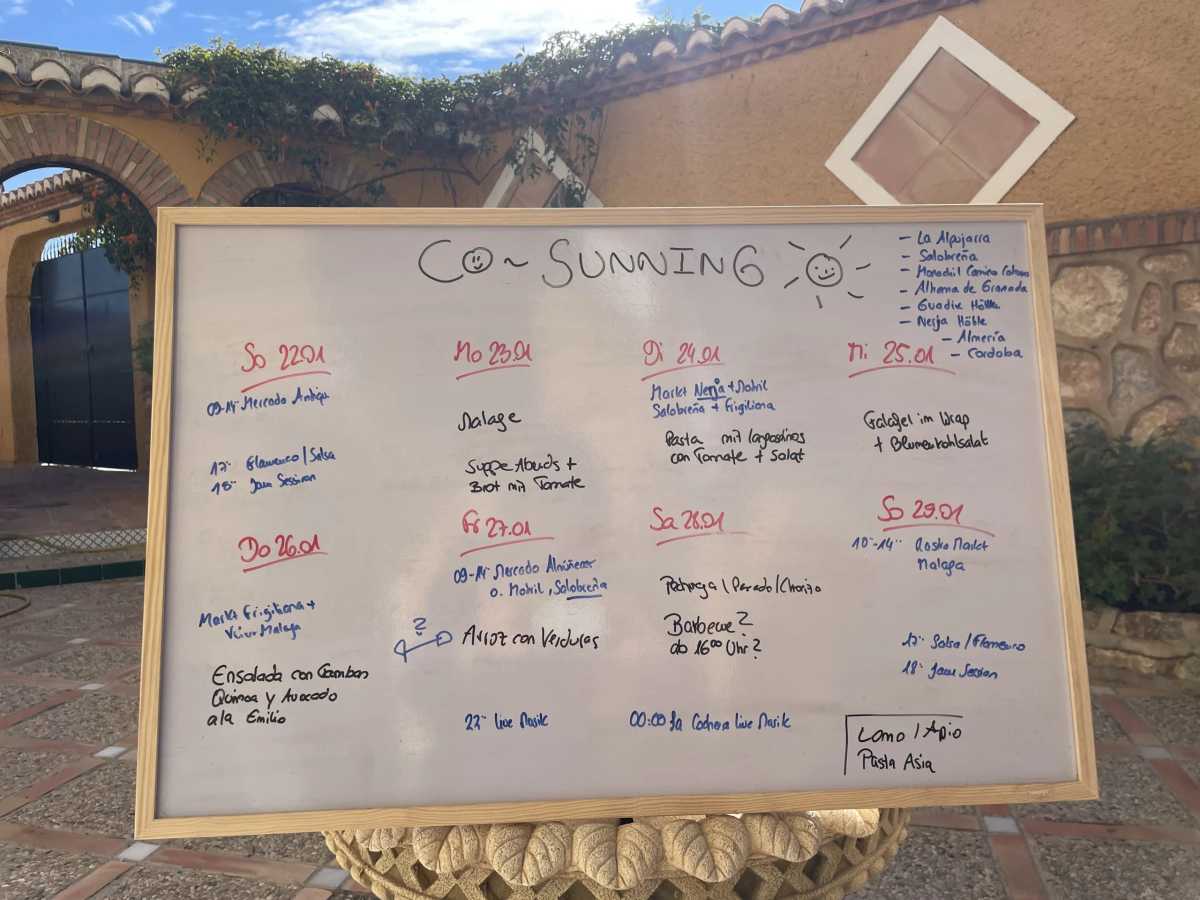 CO~ SUNNING
- La Alpujarra
- Salobreña
- Monachil Camino
- Alhama de Granada
- Guadix Höhle
- Nerja Höhle
- Almería
- Cordoba
So 22.01
09-14 Mercado Antiqu
17 Flamenco / Salsa
18 Jam Session
Mo 23.01
Malage
Suppe Abuds +
Brot mit Tomate
Di 24.01
Markt Nerja + Motril
Salobreña + Frigiliana
Pasta mit
con Tomate + Salat
Mi 25.01
Falafel im Wrap
+ Blumenkohlsalat
Do 26.01
Markt Frigiliana +
Malaga
Ensalada con Gambas
Quinoa y Avocado
a la Emilio
Fr 27.01
09-14 Mercado Almuñecar
o. Motril, Salobreña
?
Arroz con Verduras
22 Live Musik
Sa 28.01
Pechuga / / Chorizo
Barbecue?
ab 16⁰⁰ Uhr?
00:00 La Cochera Live Musik
So 29.01
10-14 Markt
Malaga
17 Salsa / Flamenco
18 Jam Session
Lomo / Apio
Pasta Asia